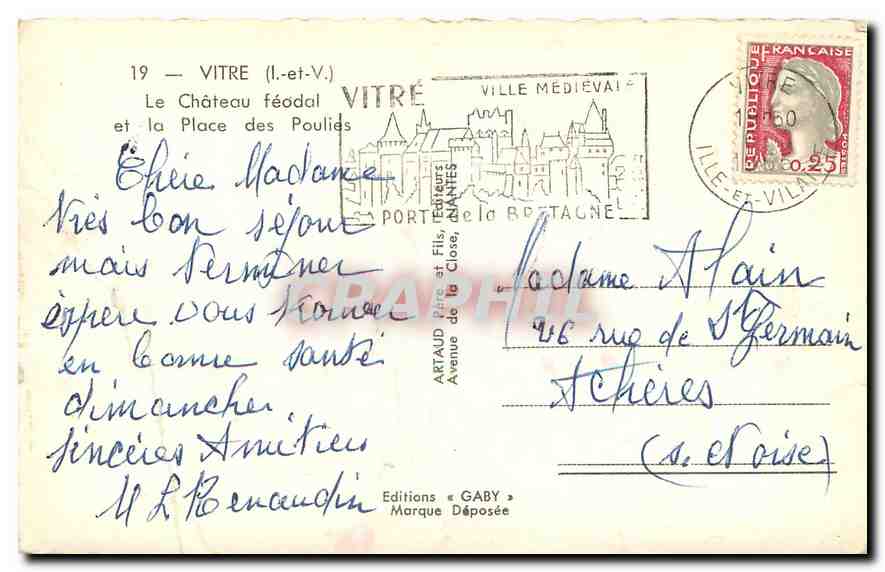 19 — VITRE (I.-et-V.)
Le Château féodal
et la Place des Poulies
VITRÉ
VILLE MÉDIÉVALE
PORTE de la BRETAGNE
REPUBLIQUE FRANCAISE
0,25
VITRE
ILLE-ET-VILAINE
Chère Madame
Très bon séjour
mais terminer
espère vous trouver
en bonne santé
dimanche
Sincères Amitiés
M L Renaudin
ARTAUD Père et Fils, Éditeurs
Avenue de la Close, NANTES
CPARAMA
Madame Alain
26 rue de St Germain
Achères
(S. et Oise)
Editions « GABY »
Marque Déposée